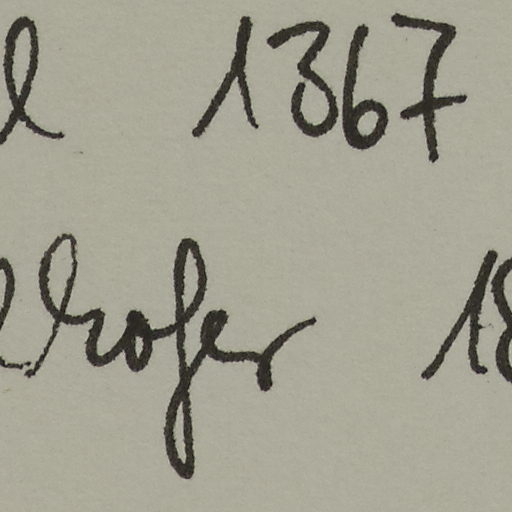 l 1367
lhofer 18